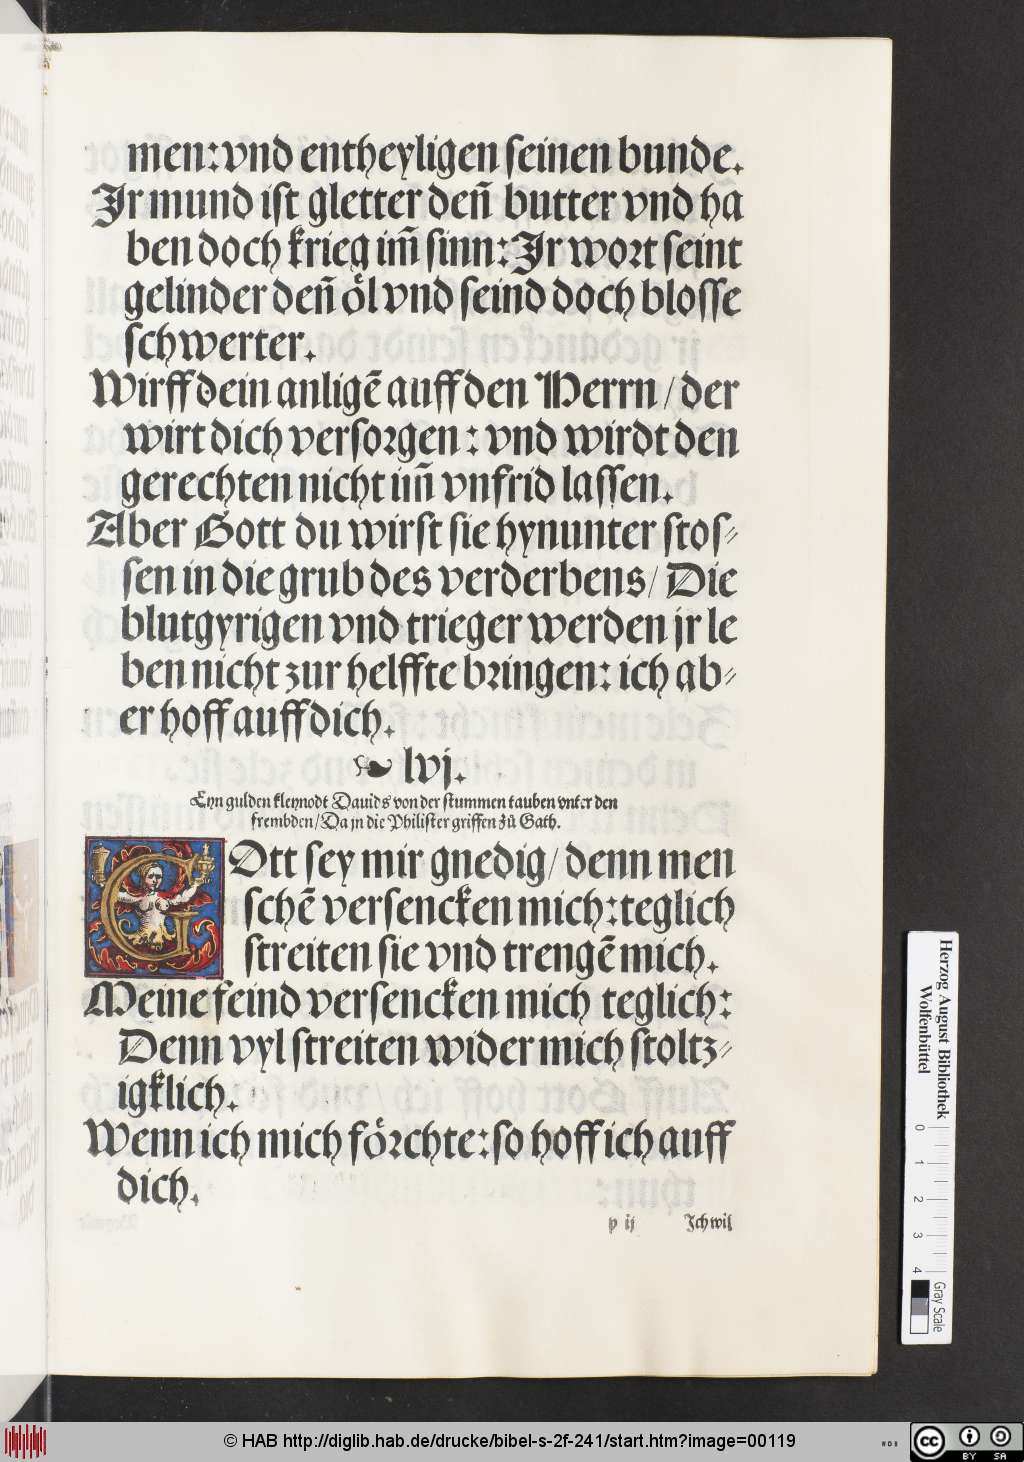 men: vnd entheyligen seinen bunde.
Jr mund ist gletter deñ butter vnd ha
ben doch krieg im̃ sinn: Jr wort seint
gelinder deñ oͤl vnd seind doch blosse
schwerter.
Wirff dein anligẽ auff den Herrn / der
wirt dich versorgen: vnd wirdt den
gerechten nicht im̃ vnfrid lassen.
Aber Gott du wirst sie hynunter stos⸗
sen in die grub des verderbens / Die
blutgyrigen vnd trieger werden jr le
ben nicht zur helffte bringen: ich ab⸗
er hoff auff dich.
❧ lvj.
Eyn gulden kleynodt Dauids von der stummen tauben vnter den
frembden / Da jn die Philister griffen zů Gath.
GOtt sey mir gnedig / denn men
schẽ versencken mich: teglich
streiten sie vnd trengẽ mich.
Meine feind versencken mich teglich:
Denn vyl streiten wider mich stoltz⸗
igklich.
Wenn ich mich foͤrchte: so hoff ich auff
dich.
p ij Jch wil
Herzog August Bibliothek
Wolfenbüttel
0 1 2 3 4
Gray Scale
© HAB http://diglib.hab.de/drucke/bibel-s-2f-241/start.htm?image=00119
WDB
cc BY SA